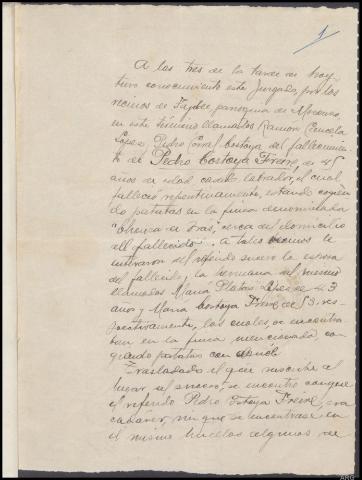 1
A las tres de la tarde de hoy
tuvo conocimiento este Juzgado, por los
vecinos de parroquia de
en este término llamados Ramon Cancela
Lopez, Pedro Corral Costoya del fallecimien
to de Pedro Costoya Freire de 45
años de edad casado labrador, el cual
falleció repentinamente, estando cogien
do patatas en la finca denominada
"Chousa de Tras", cerca del domicilio
del fallecido. A tales vecinos le
enteraron del referido suceso la esposa
del fallecido, y la hermana del mismo
llamadas Maria Platas de 43
años y Maria Costoya Freire de 53 res-
pectivamente, las cuales, se encontra
ban en la finca mencionada, co-
giendo patatas con aquél.
Trasladado el que suscribe al
lugar del suceso, se encontro con que
el referido Pedro Costoya Freire, era
cadáver, sin que se encontrase en
el mismo huellas algunas de
ARG